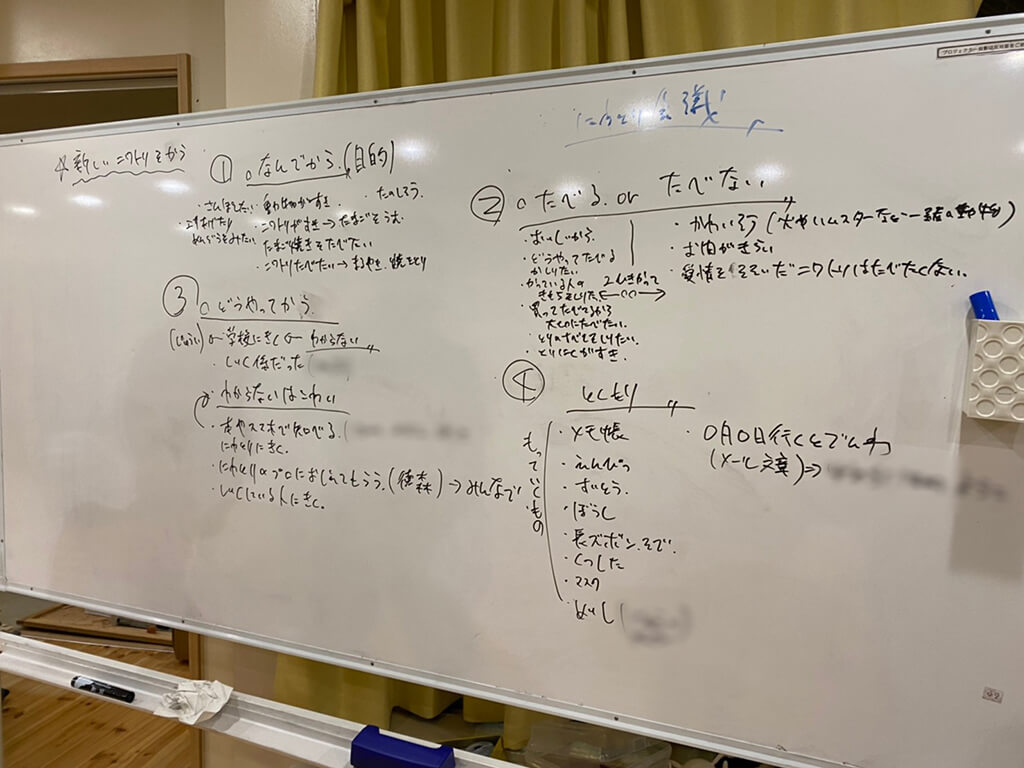 にわとり会議
4 新しいニワトリをかう
① ○なんでかう。(目的)
・さんぽしたい ・動物がすき。 ・たのしそう。
・ニワトリがすき→たまごをうむ
めんどうをみたい たまご焼きをたべたい
・ニワトリたべたい→ まるやき、焼とり
② ○たべる。or たべない
・おいしいから。
・どうやってたべるかしりたい。
・かっている人のきもちをしりたい。
2ひきかって
・買ってたべてるから
大切にたべたい。
・とりのすべてをしりたい。
・とりにくがすき。
・かわいそう(犬やハムスターなど一緒の動物)
・お肉がきらい
・愛情をそそいだニワトリはたべたくない。
③ ○どうやってかう。
←学校にきく← わからない
・しいく係だった
わからないはこわい
・本やスマホで知らべる。
にわとりにきく。
・にわとりのプロにおしえてもらう。(徳森)→みんなで
・しいくしている人にきく。
④ とくもり
もっていくもの
・メモ帳
・えんぴつ
・すいとう。
・ぼうし
・長ズボン、そで。
・くつした
・マスク
・めいし
・0月0日行くとでんわ
(メール文章)⇒